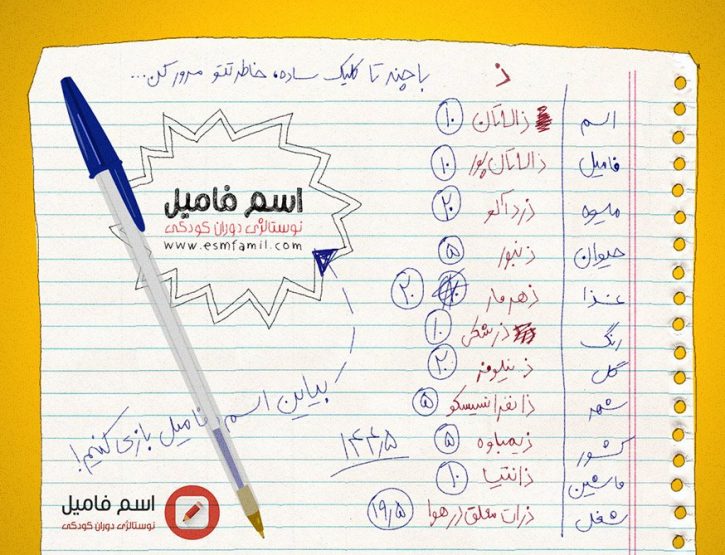 با چند تا کلیک ساده، خاطرتتو مرور کن...
ذ
اسم ذالاتان ۱۰
فامیل ذالاتان پور ۱۰
میوه ذردآلو ۲۰
حیوان ذنبور ۵
غذا ذهرمار ۲۰
رنگ ذرشکی ۱۰
گل ذنیلوفر ۲۰
شهر ذانفرانسیسکو ۵
کشور ذیمباوه ۵
ماشین ذانتیا ۱۰
شغل ذرات معلق در هوا ۱۹٫۵
۱۴۴٫۵
اسم فامیل
نوستالژی دوران کودکی
www.esmfamil.com
بیاین اسم فامیل بازی کنیم!
اسم فامیل
نوستالژی دوران کودکی